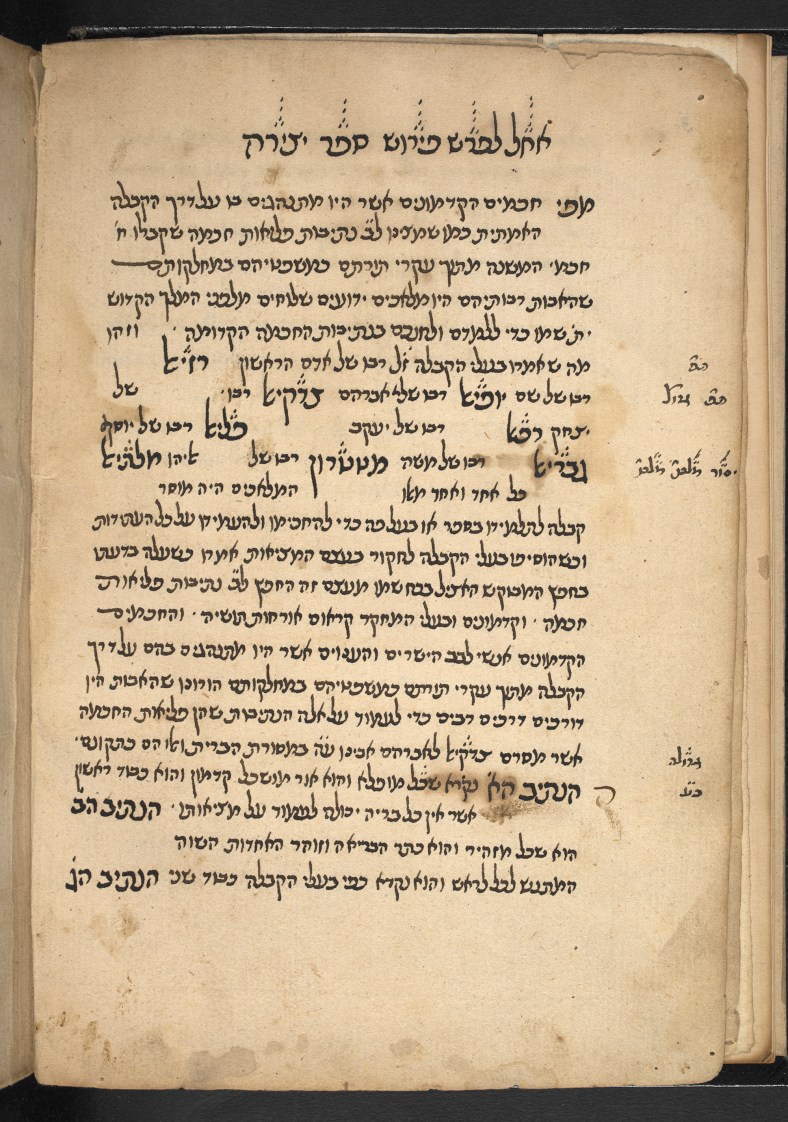 אחל לפרש פירוש ספר יצירה
מפי חכמים הקדמונים אשר היו מתנהגים בו על דרך הקבלה
האמתית כמו שמצינו לב נתיבות פליאות חכמה שקבלו
חכמי המשנה מתוך עקרי תורתם כמשפטיהם במחלקותם
שהאבות רבותיהם היו מלאכים ידועים שלוחים מלפני המלך הקדוש
ית שמו כדי ללמדם ולחכמם בנתיבות החכמה הקדומה וזהו
מה שאמרו בעלי הקבלה זל רבו של אדם הראשון רזיא
רבו של שם יופיא רבו של אברהם צדקיא רבו של
יצחק רפא רבו של יעקב פליא רבו של יוסף
גבריא רבו של משה מטטרון רבו של איהו מלתיא
כל אחד ואחד מאו המלאכים היה מוסר
קבלה לתלמידו בספר או בעל פה כדי להחכימו ולהעמידו על כל העתידות
וכשהוסיפו בעלי הקבלה לחקור בעצם המציאות אמרו כשעלה בדעתו
בחפץ המבוקש האציל בכח שמו מעצם זה החפץ לב נתיבות פליאות
חכמה וקדמונים ובעלי המחקר קראום אורחות תושיה והחכמים
הקדמונים אנשי לבב הישרים והענוים אשר היו מתנהגים בהם על דרך
הקבלה מתוך עקרי תורתם כמשפטיהם במחלקותם הורונו שהאבות היו
דורכים דרכים רבים כדי לעמוד על אלה הנתיבות שהן פליאות החכמה
אשר מסרם צדקיא לאברהם אבינו עה במסורת הברית ואו הם כתקונם
הנתיב הא נקרא שכל מופלא והוא אור מושכל קדמון והוא כבוד ראשון
אשר אין כל בריה יכולה לעמוד על מציאותו הנתיב הב
הוא שכל מזהיר והוא כתר הבריאה וזוהר האחדות השוה
המתנשא לכל לראש והוא נקרא כפי בעלי הקבלה כבוד שני הנתיב הג
גדולה